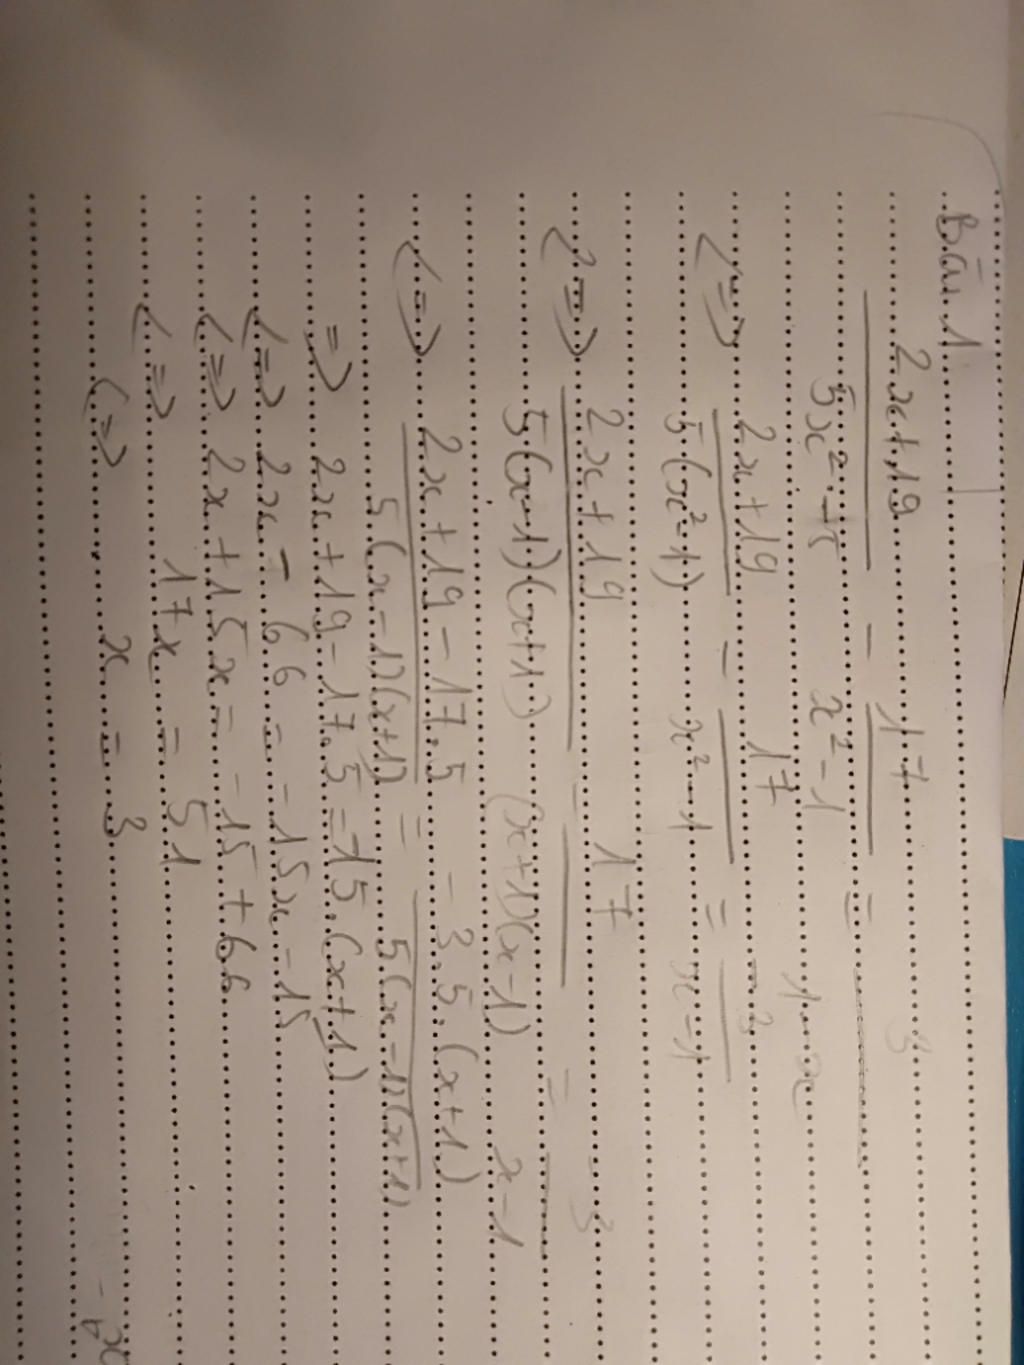 Bài 1
2x+19 / 5x²-5 - 17 / x²-1 = 3 / 1-x
<=> 2x+19 / 5(x²-1) - 17 / x²-1 = -3 / x-1
<=> 2x+19 / 5(x-1)(x+1) - 17 / (x+1)(x-1) = 3 / x-1
<=> 2x+19-17.5 / 5(x-1)(x+1) = -3.5.(x+1) / 5(x-1)(x+1)
=> 2x+19-17.5=-15.(x+1)
<=> 2x-66=-15x-15
<=> 2x+15x=-15+66
<=> 17x=51
<=> x=3